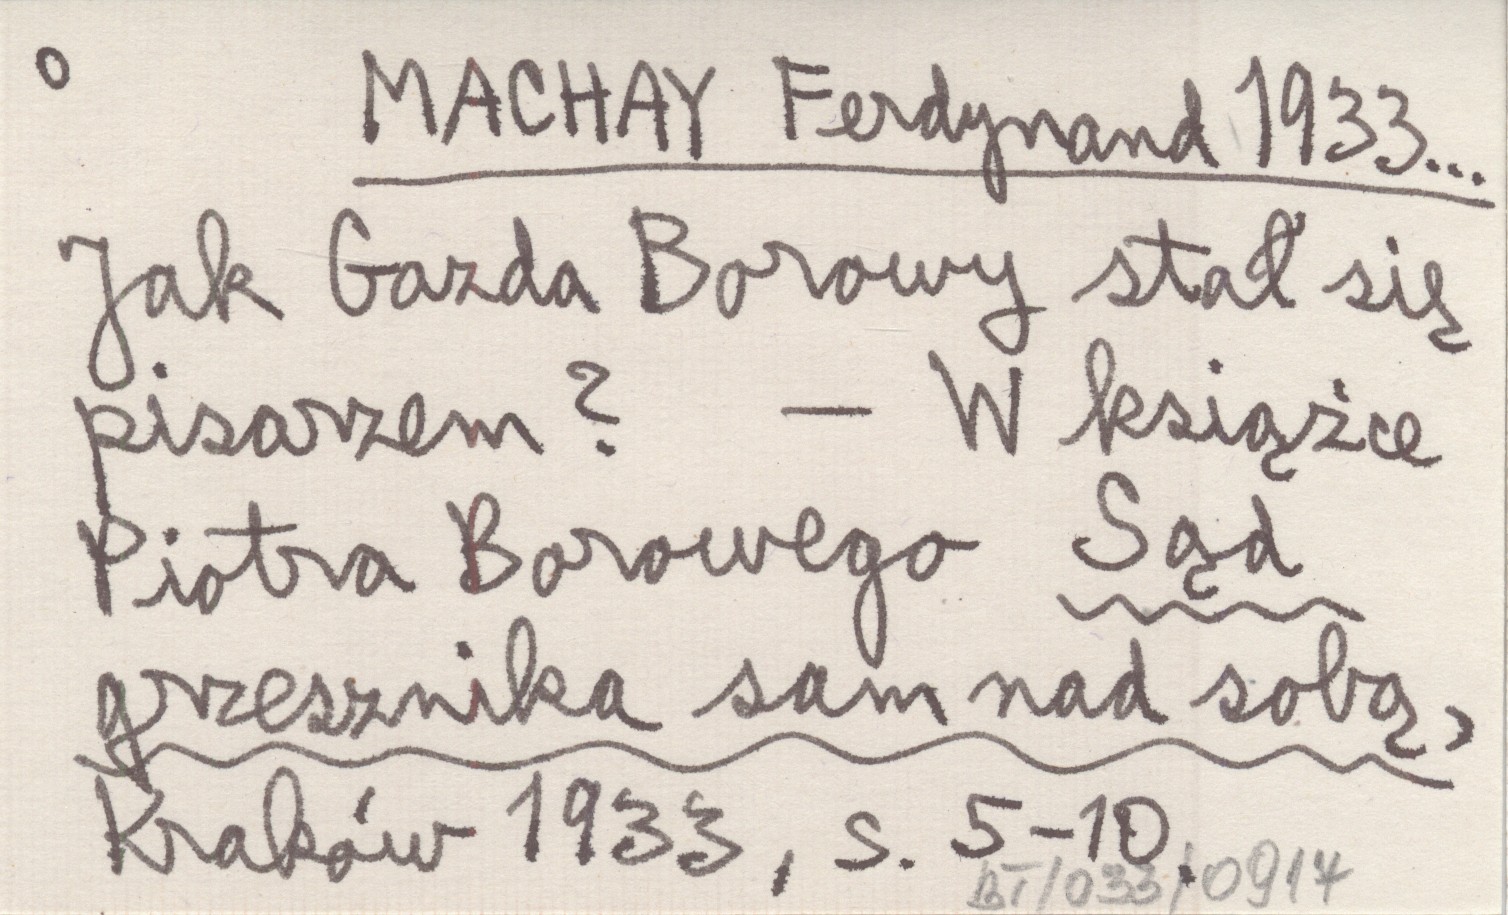 o MACHAY Ferdynand 1933...
Jak Gazda Borowy stał się
pisarzem? — W książce
Piotra Borowego Sąd
grzesznika sam nad sobą,
Kraków 1933, s. 5-10.
BT/033/0914